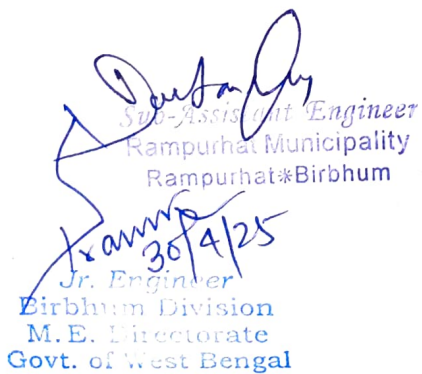 Sub-Assistant Engineer
Rampurhat Municipality
Rampurhat*Birbhum
30/4/25
Jr. Engineer
Birbhum Division
M. E. Directorate
Govt. of West Bengal